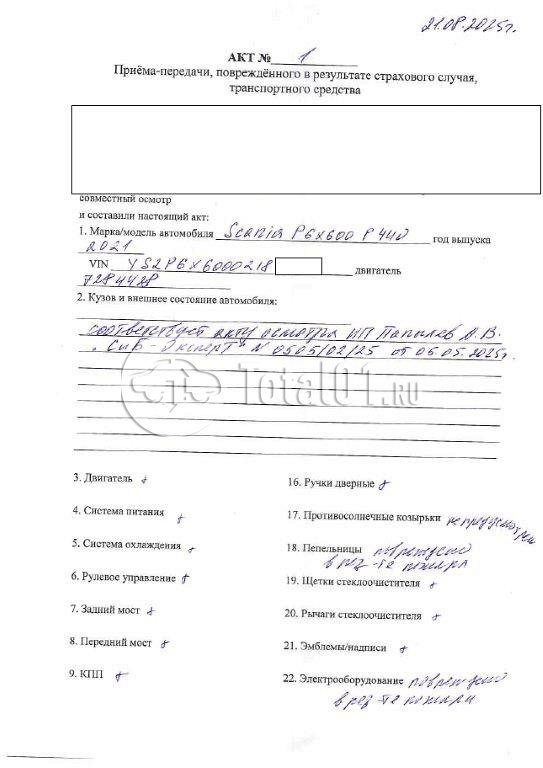 21.08.2025г.
АКТ № 1
Приёма-передачи, повреждённого в результате страхового случая,
транспортного средства
совместный осмотр
и составили настоящий акт:
1. Марка/модель автомобиля Scania P6x600 P440 год выпуска
2021
VIN YS2P6X6000218 двигатель
7284428
2. Кузов и внешнее состояние автомобиля:
соответствует акту осмотра ИП А.В.
"СИБ-Эксперт" N 0505/02/25 от 05.05.2025г.
Total01.RU
3. Двигатель
16. Ручки дверные
4. Система питания
17. Противосолнечные козырьки
5. Система охлаждения
18. Пепельницы повреждено
в рез-те пожара
6. Рулевое управление
19. Щетки стеклоочистителя
7. Задний мост
20. Рычаги стеклоочистителя
8. Передний мост
21. Эмблемы/надписи
9. КПП
22. Электрооборудование повреждено
в рез-те пожара